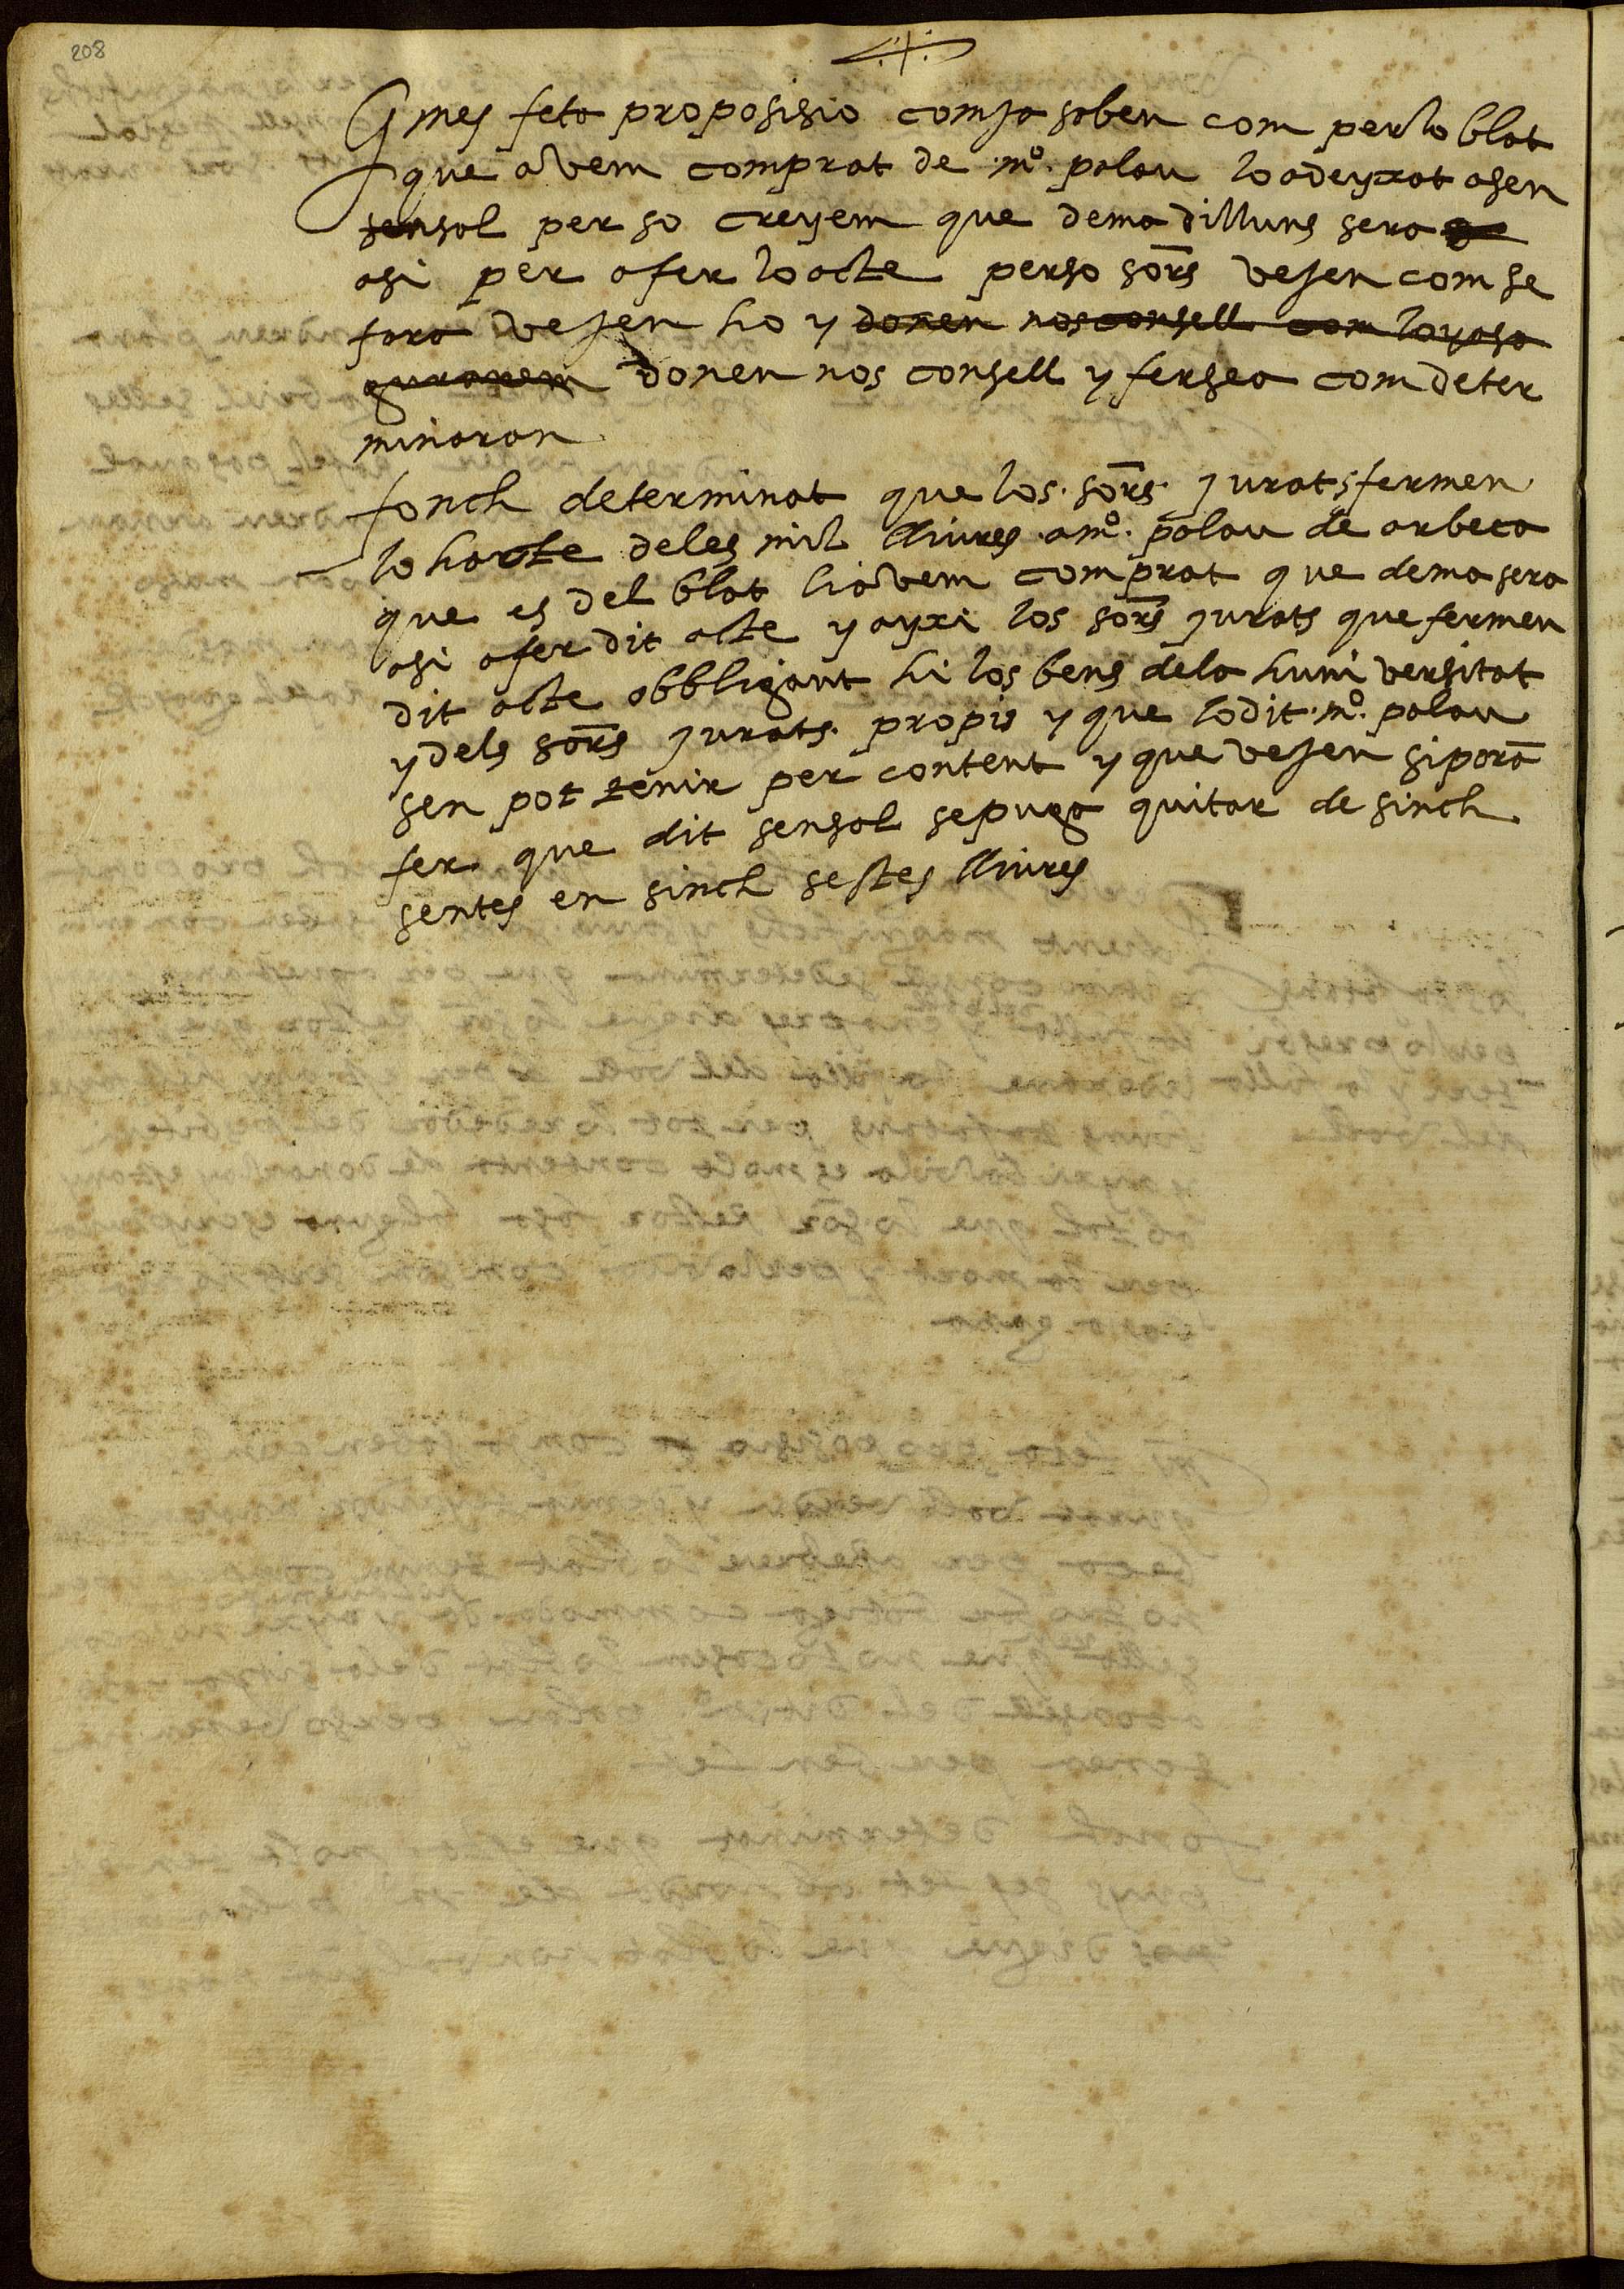 208
G mes feta proposisio comja saben com per lo blat
que avem comprat de mº. palau lo adeyxat asen
sensal per so creyem que dema dilluns sera
asi per afer lo acte perso sors vejen com se
fara vejen ho y donen nos consell com lo yasa
guranem donen nos consell y ferseа com deter
minaran
fonch determinat que los sors jurats fermen
lo hacte deles mil lliures a mº. palau de arbeca
que es del blat liavem comprat que dema sera
asi afer dit acte y ayxi los sors jurats que fermen
dit acte obbligant hi los bens dela huni versitat
y dels sors jurats propis y que lo dit mº. palau
sen pot tenir per content y que vejen si pora
fer que dit sensal se puga quitar de sinch
sentes en sinch sestes lliures